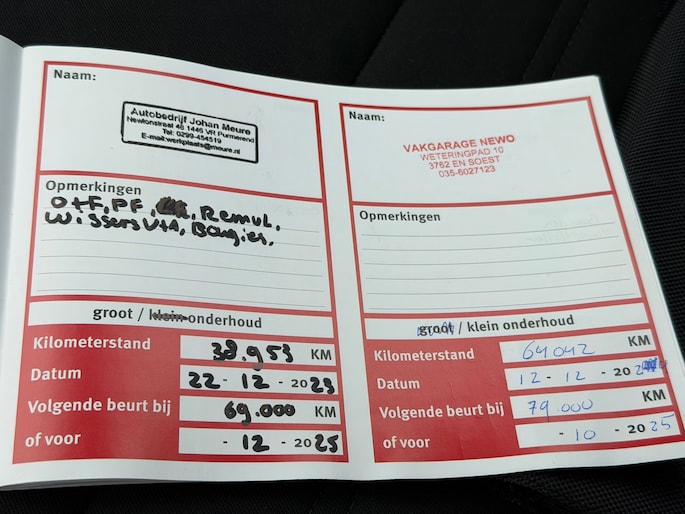 Naam:
Autobedrijf Johan Meure
Newtonstraat 48 1446 VR Purmerend
Tel: 0299-454519
E-mail:werkplaats@meure.nl
Opmerkingen
O+F, PF, Remvl.
Wissers V+A, Bougies.
groot / klein onderhoud
Kilometerstand 38.953 KM
Datum 22 - 12 - 2023
Volgende beurt bij 69.000 KM
of voor - 12 - 2025
Naam:
VAKGARAGE NEWO
WETERINGPAD 10
3762 EN SOEST
035-6027123
Opmerkingen
groot / klein onderhoud
Kilometerstand 64042 KM
Datum 12 - 12 - 20
Volgende beurt bij 79.000 KM
of voor - 10 - 2025